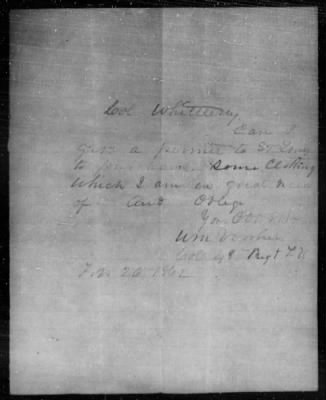 Col Whittlesey
Can I
get a permit to St Louis
to purchase some Clothing
which I am in great need
of and Oblige
Yr Obt
Wm
Col 49 Regt
Feb 26 1862